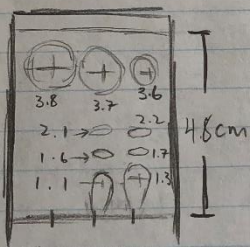 3.8 3.7 3.6
2.1→ 2.2
1.6→ 1.7
1.1→ 1.3
4.8cm